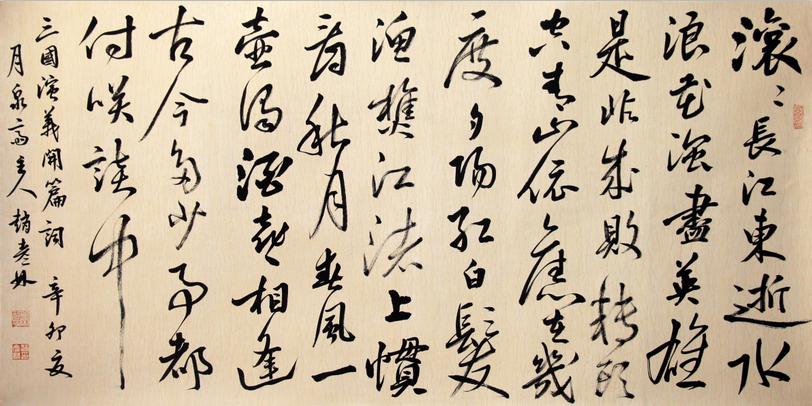 滚〻長江東逝水
浪花淘盡英雄
是非成敗轉頭
空青山依舊在幾
度夕陽紅白髮
渔樵江渚上慣
看秋月春風一
壺濁酒喜相逢
古今多少事都
付咲談中
三國演義開篇詞 辛卯夏
月泉齋主人趙